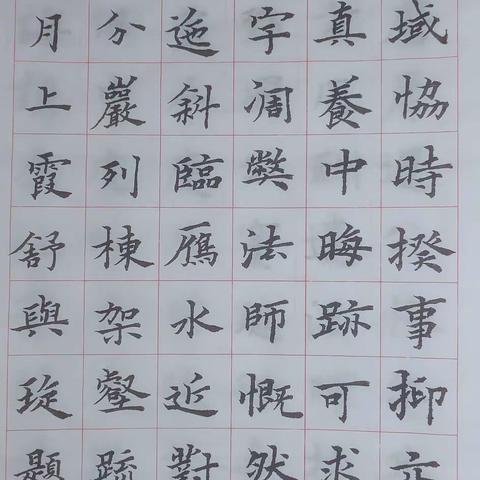 域恊時揆事抑
真養中晦跡可求
字凋弊法師慨然
迤斜臨鴈水近對
分巖列棟架壑疏
月上霞舒與琁題